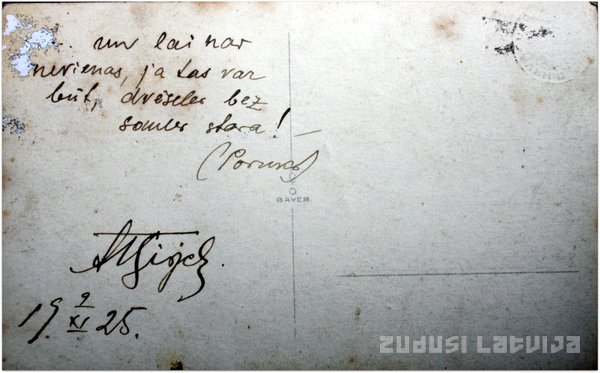 un lai nav
nevienas, ja tas var
būt, dvēseles bez
saules stara! –
(Poruks)
BAYER
19 9/XI 25.
ZUDUSI LATVIJA